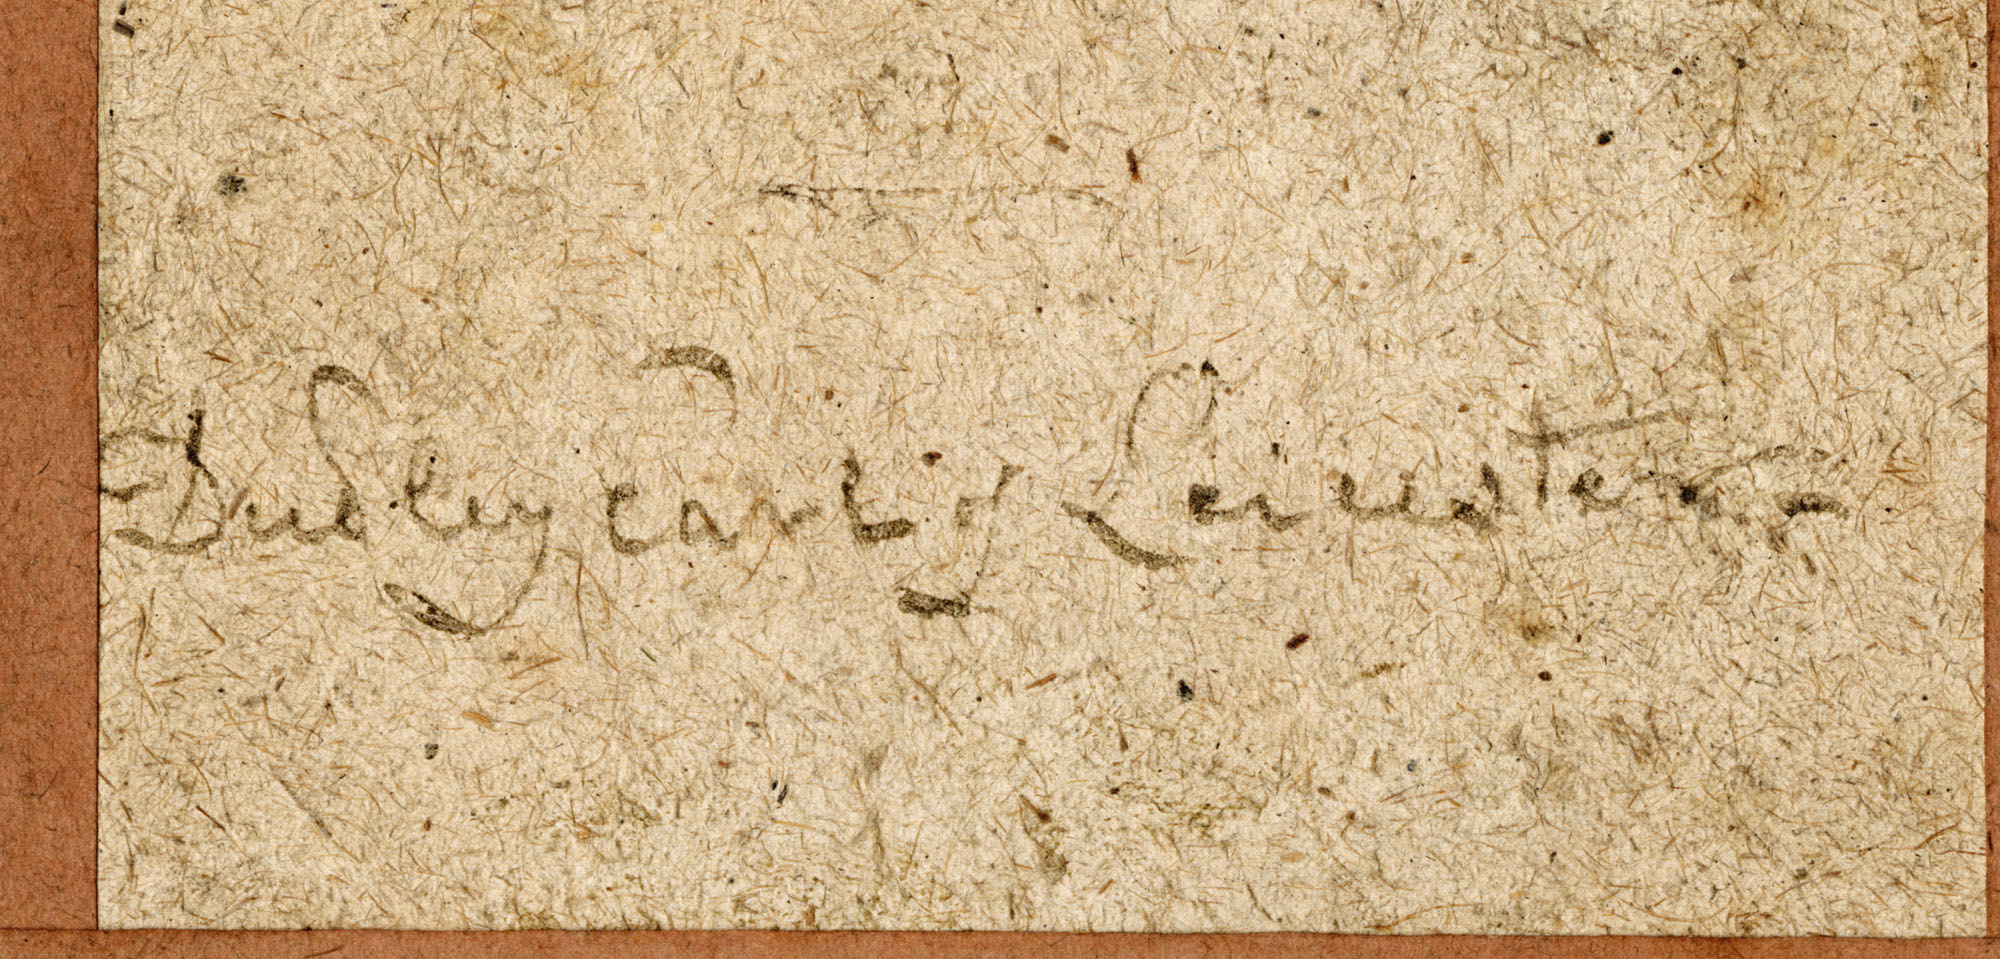 Dudley Earl of Leicester